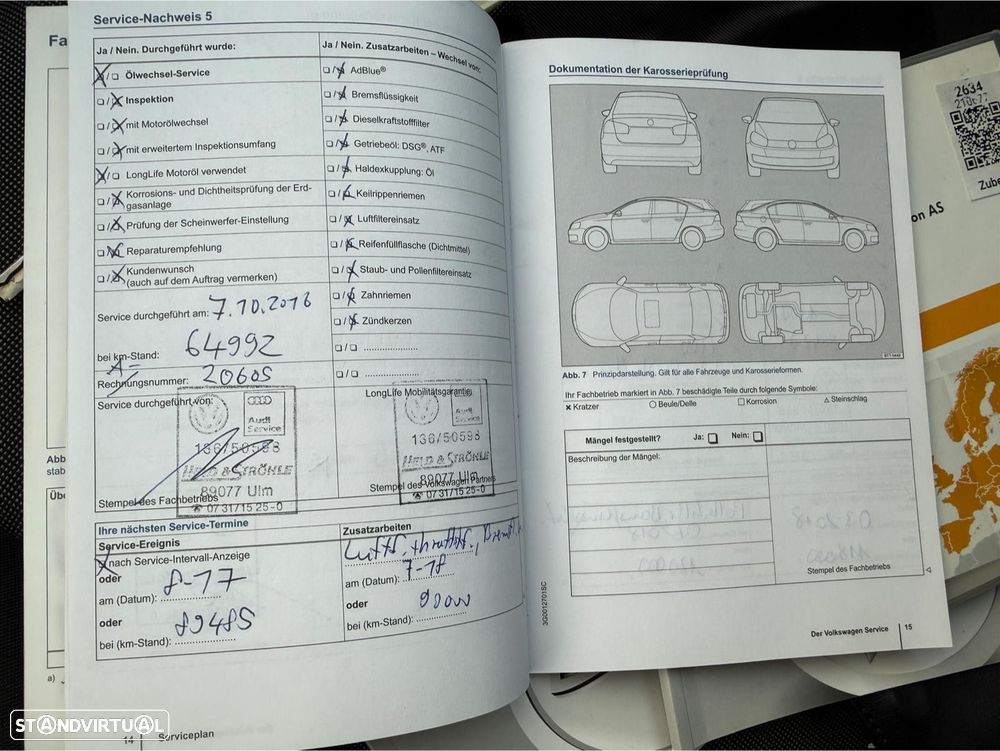 Service-Nachweis 5
Fa
Ja / Nein. Durchgeführt wurde:
Ölwechsel-Service
Inspektion
mit Motorölwechsel
mit erweitertem Inspektionsumfang
LongLife Motoröl verwendet
Korrosions- und Dichtheitsprüfung der Erd-
gasanlage
Prüfung der Scheinwerfer-Einstellung
Reparaturempfehlung
Kundenwunsch
(auch auf dem Auftrag vermerken)
Service durchgeführt am: 7.10.2016
bei km-Stand: 64992
Rechnungsnummer: 20605
Service durchgeführt von:
Audi
Service
136/50598
HELD & STRÖHLE
89077 Ulm
☎ 0731/15 25-0
Stempel des Fachbetriebs
Ja / Nein. Zusatzarbeiten – Wechsel von:
AdBlue®
Bremsflüssigkeit
Dieselkraftstofffilter
Getriebeöl: DSG®, ATF
Haldexkupplung: Öl
Keilrippenriemen
Luftfiltereinsatz
Reifenfüllflasche (Dichtmittel)
Staub- und Pollenfiltereinsatz
Zahnriemen
Zündkerzen
LongLife Mobilitätsgarantie:
Audi
Service
136/50598
HELD & STRÖHLE
89077 Ulm
☎ 0731/15 25-0
Stempel des Volkswagen Partners
Ihre nächsten Service-Termine
Service-Ereignis
nach Service-Intervall-Anzeige
oder
am (Datum): 8-17
oder
bei (km-Stand): 89485
Zusatzarbeiten
am (Datum): 7-18
oder
bei (km-Stand): 90000
14 Serviceplan
Abb
stab
a)
Dokumentation der Karosserieprüfung
Abb. 7 Prinzipdarstellung. Gilt für alle Fahrzeuge und Karosserieformen.
Ihr Fachbetrieb markiert in Abb. 7 beschädigte Teile durch folgende Symbole:
✕ Kratzer ○ Beule/Delle □ Korrosion △ Steinschlag
Mängel festgestellt? Ja: □ Nein: □
Beschreibung der Mängel:
Stempel des Fachbetriebs
3G0012701SC
Der Volkswagen Service 15
2634
Zube
on AS
STANDVIRTUAL